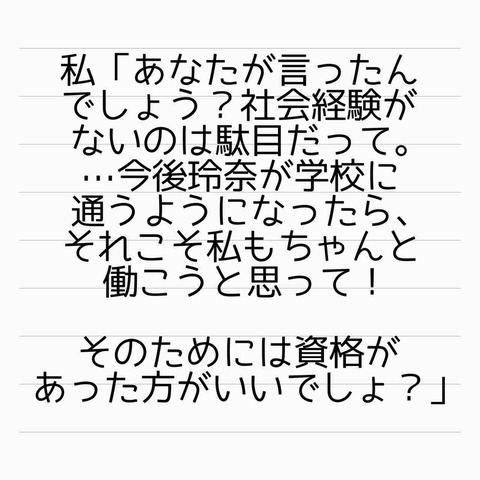 私「あなたが言ったん
でしょう？社会経験が
ないのは駄目だって。
…今後玲奈が学校に
通うようになったら、
それこそ私もちゃんと
働こうと思って！
そのためには資格が
あった方がいいでしょ？」